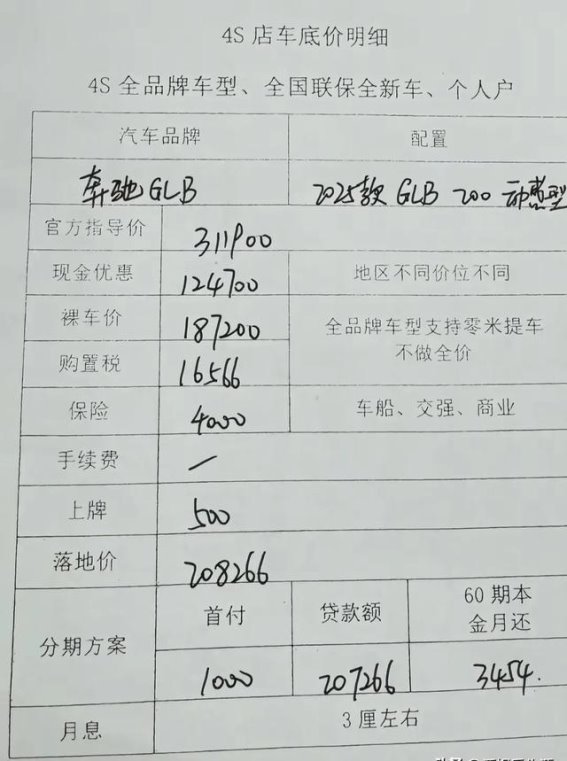 4S 店车底价明细
4S 全品牌车型、全国联保全新车、个人户
汽车品牌 配置
奔驰 GLB 2025款 GLB 200 动感型
官方指导价 311900
现金优惠 124700 地区不同价位不同
裸车价 187200 全品牌车型支持零米提车
不做全价
购置税 16566
保险 4000 车船、交强、商业
手续费 —
上牌 500
落地价 208266
分期方案 首付 贷款额 60 期本
金月还
1000 207266 3454.
月息 3 厘左右